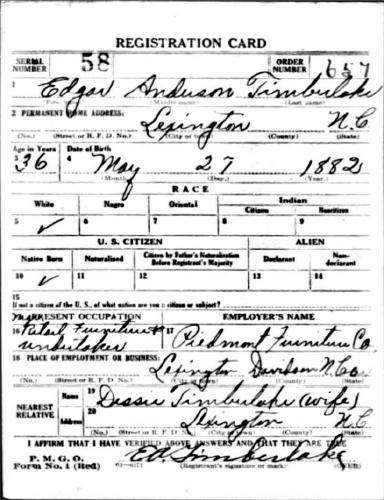 REGISTRATION CARD
SERIAL NUMBER 58 ORDER NUMBER 657
1 Edgar Anderson Timberlake
(First name) (Middle name) (Last name)
2 PERMANENT HOME ADDRESS:
Lexington N.C
(No.) (Street or R. F. D. No.) (City or town) (County) (State)
Age in Years Date of Birth
3 36 4 May 27 1882
(Month.) (Day.) (Year.)
RACE
White Negro Oriental Indian
Citizen Noncitizen
5 ✓ 6 7 8 9
U. S. CITIZEN ALIEN
Native Born Naturalized Citizen by Father's Naturalization Before Registrant's Majority Declarant Non-declarant
10 ✓ 11 12 13 14
15
If not a citizen of the U. S., of what nation are you a citizen or subject?
PRESENT OCCUPATION EMPLOYER'S NAME
16 Retail Furniture & undertaker 17 Piedmont Furniture Co.
18 PLACE OF EMPLOYMENT OR BUSINESS:
Lexington Davidson N.C
(No.) (Street or R. F. D. No.) (City or town) (County) (State)
NEAREST RELATIVE Name 19 Dessie Timberlake (wife)
Address 20 Lexington N.C
(No.) (Street or R. F. D. No.) (City or town) (County) (State)
I AFFIRM THAT I HAVE VERIFIED ABOVE ANSWERS AND THAT THEY ARE TRUE
P. M. G. O.
Form No. 1 (Red) Ed Timberlake
(Registrant's signature or mark) (OVER)